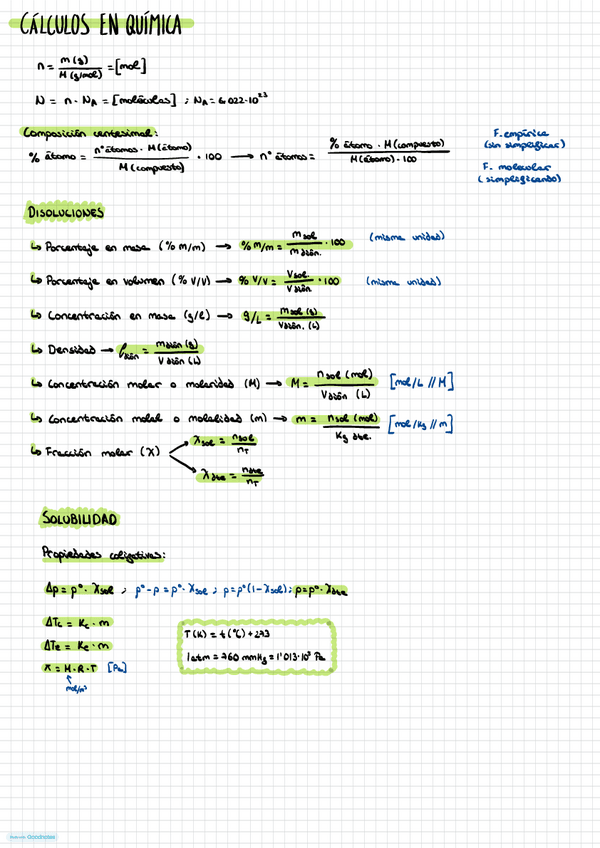 CÁLCULOS EN QUÍMICA
n = m (g) / M (g/mol) = [mol]
N = n · NA = [moléculas] ; NA = 6.022·10²³
Composición centesimal:
% átomo = nº átomos · M (átomo) / M (compuesto) · 100 → nº átomos = % átomo · M (compuesto) / M (átomo) · 100
F. empírica
(sin simplificar)
F. molecular
(simplificando)
DISOLUCIONES
↳ Porcentaje en masa (% m/m) → % m/m = m sol / m disón. · 100 (misma unidad)
↳ Porcentaje en volumen (% V/V) → % V/V = V sol. / V disón · 100 (misma unidad)
↳ Concentración en masa (g/l) → g/L = m sol (g) / V disón. (L)
↳ Densidad → ρ disón = m disón (g) / V disón (L)
↳ Concentración molar o molaridad (M) → M = n sol (mol) / V disón (L) [mol/L // M]
↳ Concentración molal o molalidad (m) → m = n sol (mol) / Kg dte. [mol/kg // m]
↳ Fracción molar (χ)
χ sol = n sol / nT
χ dte = n dte / nT
SOLUBILIDAD
Propiedades coligativas:
Δp = pº · χ sol ; pº - p = pº · χ sol ; p = pº (1 - χ sol) ; p = pº · χ dte
ΔTc = Kc · m
ΔTe = Ke · m
π = M · R · T [Pa]
mol/m³
T (K) = t (ºC) + 273
1 atm = 760 mmHg = 1'013·10⁵ Pa
Goodnotes